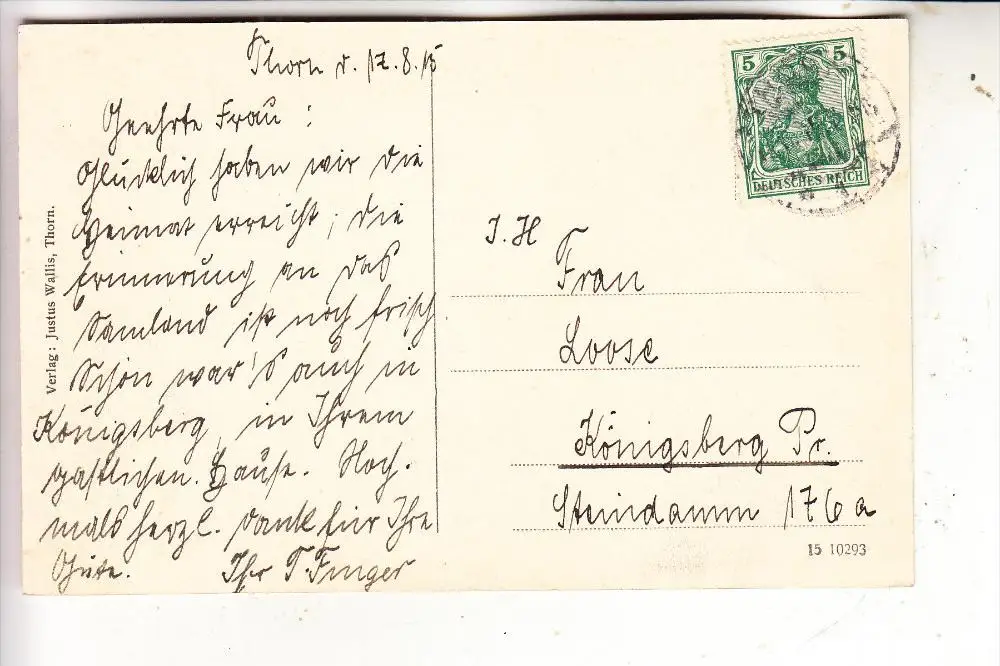 Thorn d. 17.8.15
Geehrte Frau:
Glücklich haben wir die
Heimat erreicht, die
Erinnerung an das
Samland ist noch frisch
Schön war's auch in
Königsberg, in Ihrem
gastlichen. Hause. Noch-
mals herzl. Dank für Ihre
Güte. Ihr T. Finger
Verlag: Justus Wallis, Thorn.
5 5
DEUTSCHES REICH
I. H
Frau
Loose
Königsberg Pr.
Steindamm 176a
15 10293